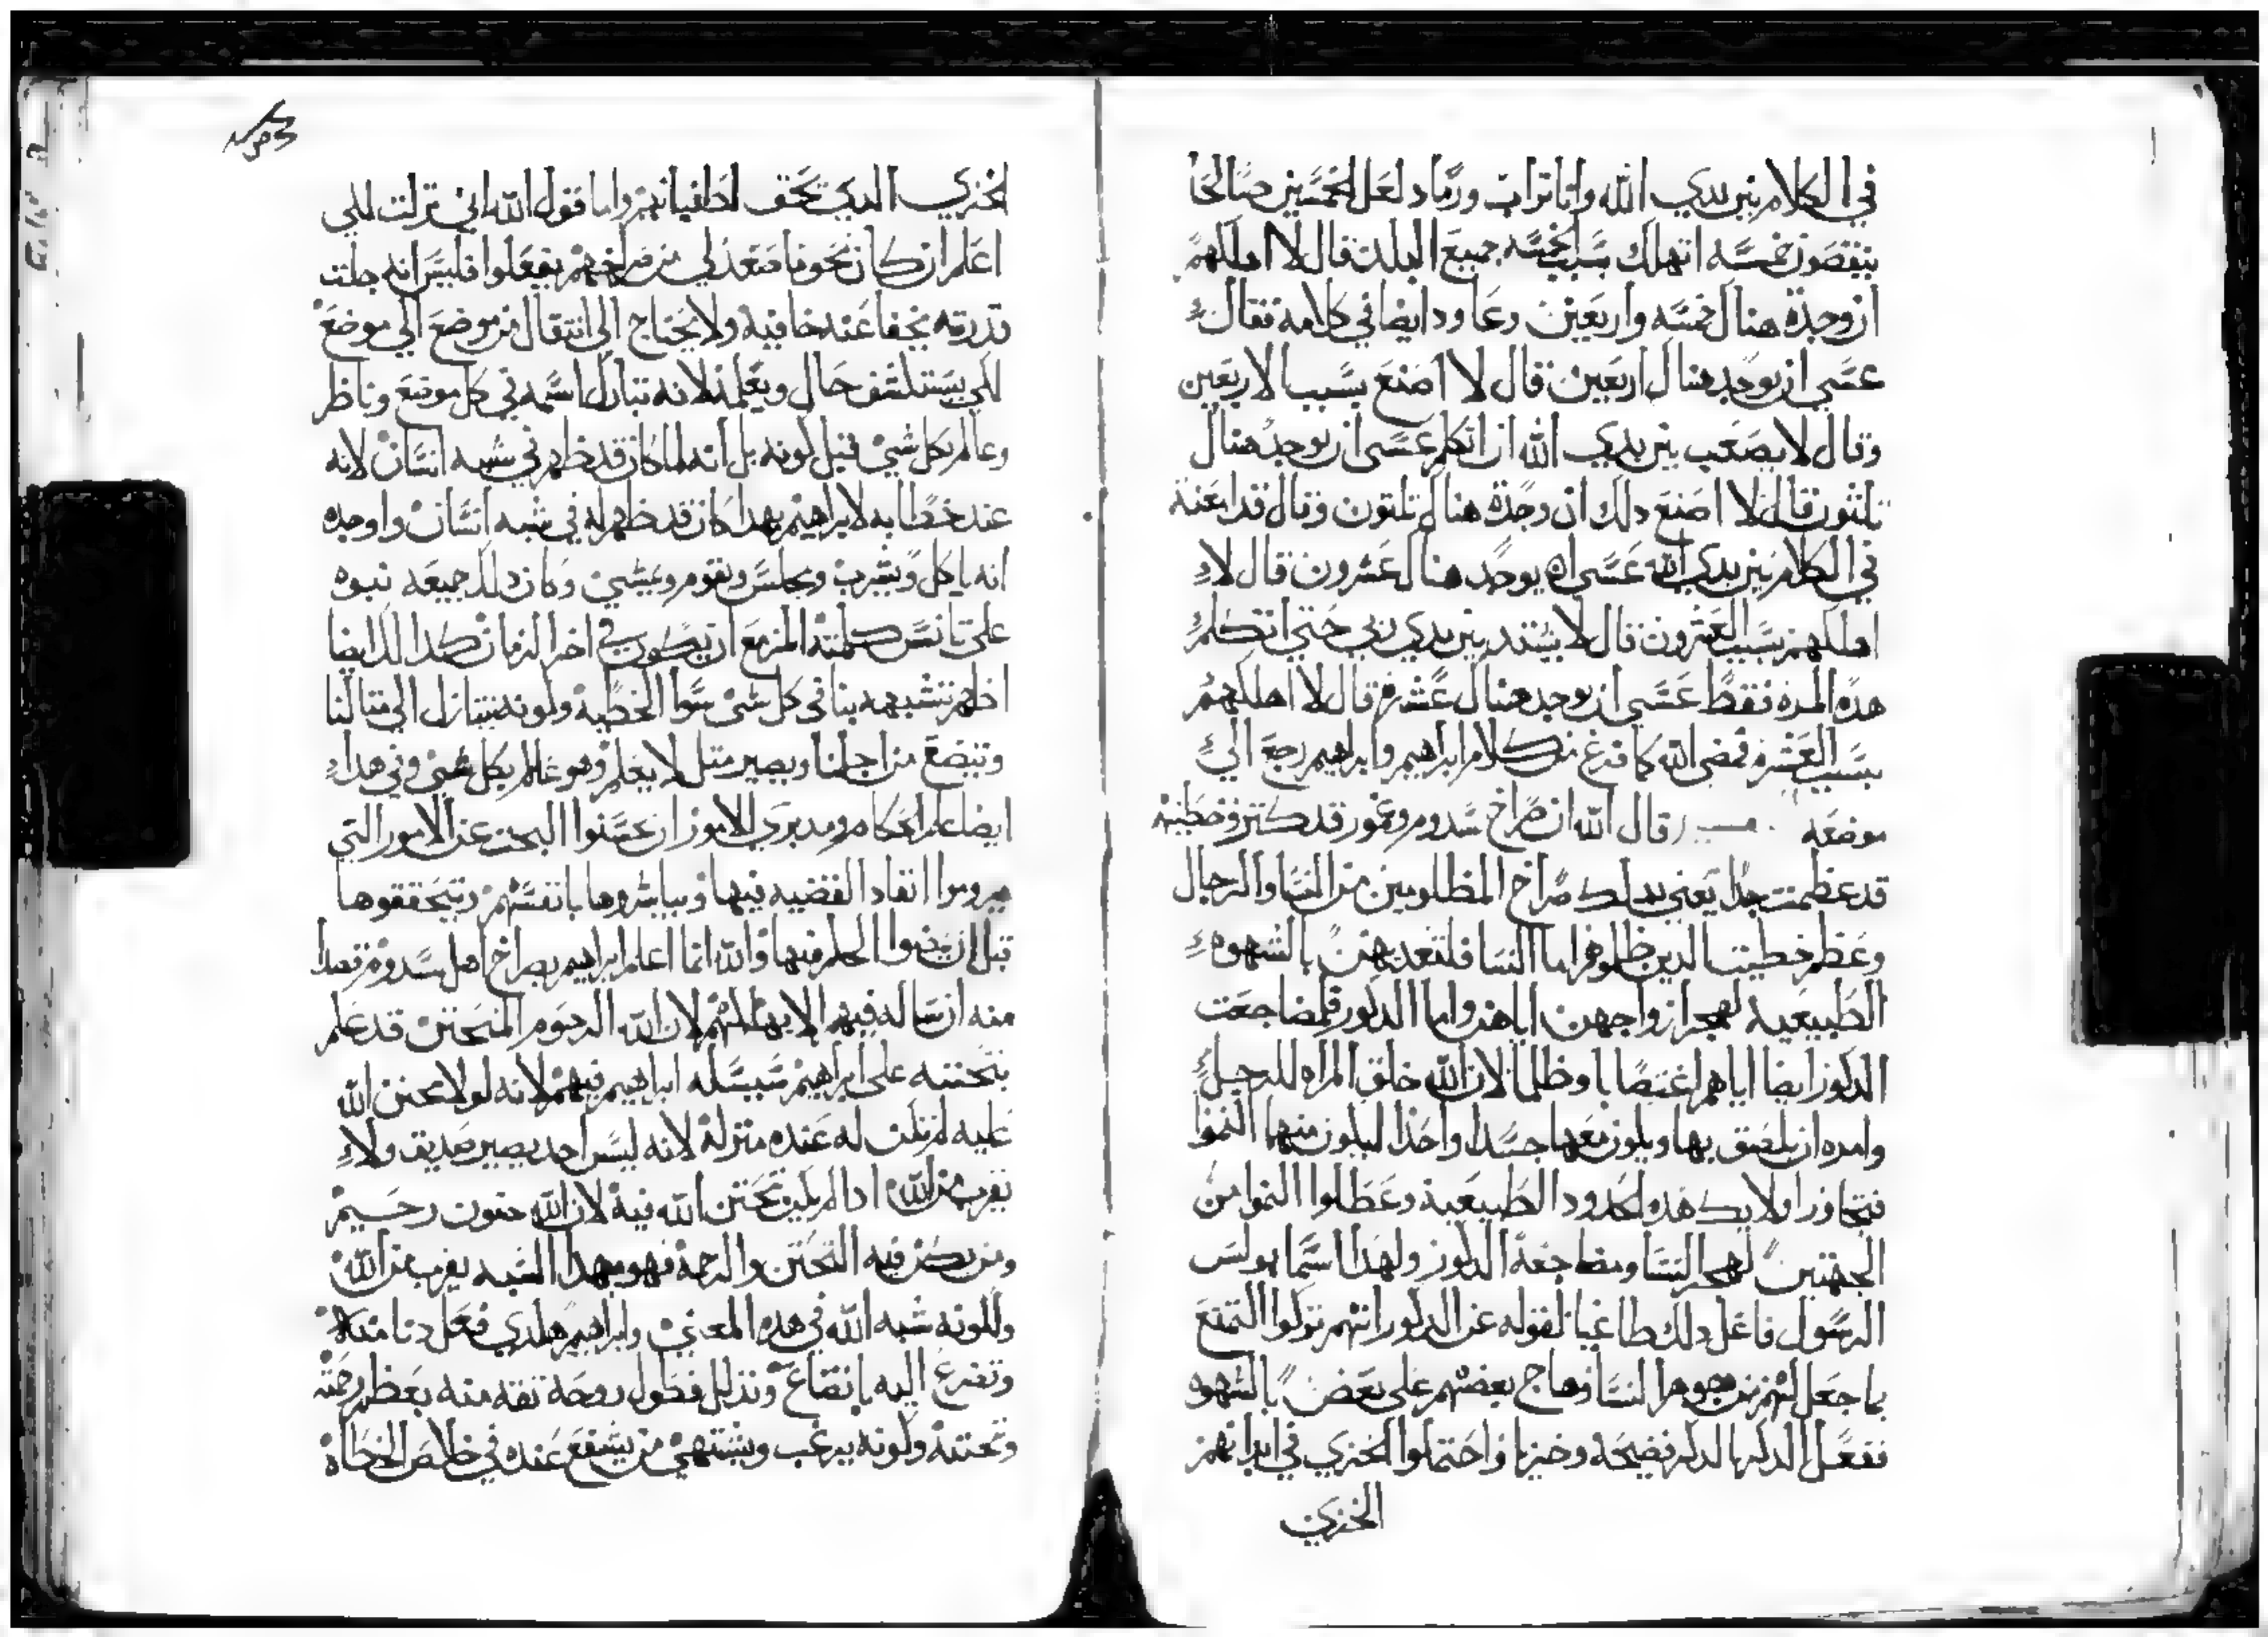 في الكلام بين يدي الله وانا تراب ورماد لعل الخمسين صالحا
ينقصون خمسه اتهلك بسبب الخمسه جميع البلده قال لا اهلكهم
ان وجدة هناك خمسه واربعين وعاود ايضا في كلامه فقال
عسي ان يوجد هناك اربعين قال لا اصنع بسبب الاربعين
وقال لا يصعب بين يدي الله ان اتكلم عسى ان يوجد هناك
تلتون قال لا اصنع دلك ان وجدة هناك تلتون وقال قد امعنة
في الكلام بين يدي الله عسى ان يوجد هناك عشرون قال لا
اهلكهم بسبب العشرون قال لا يشتد بين يدي ربي حتي اتكلم
هده المره فقط عسي ان يوجد هناك عشره قال لا اهلكهم
بسبب العشره فمضى الله كما فرغ من كلام ابراهيم وابراهيم رجع الي
موضعه قال الله ان صراخ سدوم وغمور قد كتر وخطيتهم
قد عظمت جدا يعني بدلك صراخ المظلومين من النسا والرجال
وعظم خطيت الدين ظلموهم اما النسا فلتعديهن بالشهوه
الطبيعيه لهجر ازواجهن اياهن واما الدكور فلمضاجعت
الدكور ايضا اياهم اغتصابا وظلما لان الله خلق المراه للرجل
وامره ان يلصق بها ويكون معها جسدا واحدا ليكون منها النموا
فتجاوز اولايك هده الحدود الطبيعية وعطلوا النموا من
الجهتين لهجر النسا ومضاجعة الدكور ولهدا اسما بولس
الرسول فاعل دلك طاغيا لقوله عن الدكور انهم تركوا التمتع
بما جعل لهم من جوهر النسا وهاج بعضهم على بعض بالشهوه
ففعل الدكر بالدكر فضيحة وخزيا واحتملوا الخزي في ابدانهم
الخزي
الخزي الدي تحق لطغيانهم واما قول الله اني نزلت لكي
اعلم ان كان نحو ما صعد لي من صراخهم يفعلوا فليس انه جلت
قدرته يخفا عنه خافيه ولا يحتاج الي انتقال من موضع الي موضع
لكي يستكشف حال ويعلمه لانه تبارك اسمه في كل موضع وناظر
وعالم بكل شي قبل كونه بل انه لما كان قد ظهر في شبه انسان لانه
عند خطابه لابراهيم بهدا كان قد ظهر له في شبه انسان واوجده
انه ياكل ويشرب ويجلس ويقوم ويمشي وكان دلك جميعه نبوه
على تانس كلمته المزمع ان يكون في اخر الزمان كدلك ايضا
اظهر تشبهه بنا في كل شي سوا الخطيه وكونه يتنازل الي متالنا
ويتضع من اجلنا ويصير متل لا يعلم وهو عالم بكل شي وفي هدا
ايضا علم الحكام ومدبري الامور ان يحسنوا البحت عن الامور التي
يروموا انفاد القضيه فيها ويباشروها بانفسهم ويتحققوها
قبل ان يمضوا الحكم فيها والله انما اعلم ابراهيم بصراخ اهل سدوم قصدا
منه ان يساله فيهم الا يهلكهم لان الله الرحوم المتحنن قد علم
بتحننه على ابراهيم سيسله ابراهيم فيهم لانه لولا تحنن الله
عليه لم تكن له عنده منزلة لانه ليس احد يصير صديق ولا
يقرب من الله ادا لم يكن تحنن الله فيه لان الله حنون رحيم
ومن يكن فيه التحنن والرحمة فهو بهدا الشبه يقرب من الله
ولكونه شبه الله في هده المعني وابراهيم هكدي فعل دنا منه
وتضرع اليه باتضاع وتدلل فطول روحه تقه منه بعظم رحمته
وتحننه وكونه يرغب ويشتهي من يشفع عنده في خلاص الخطاه